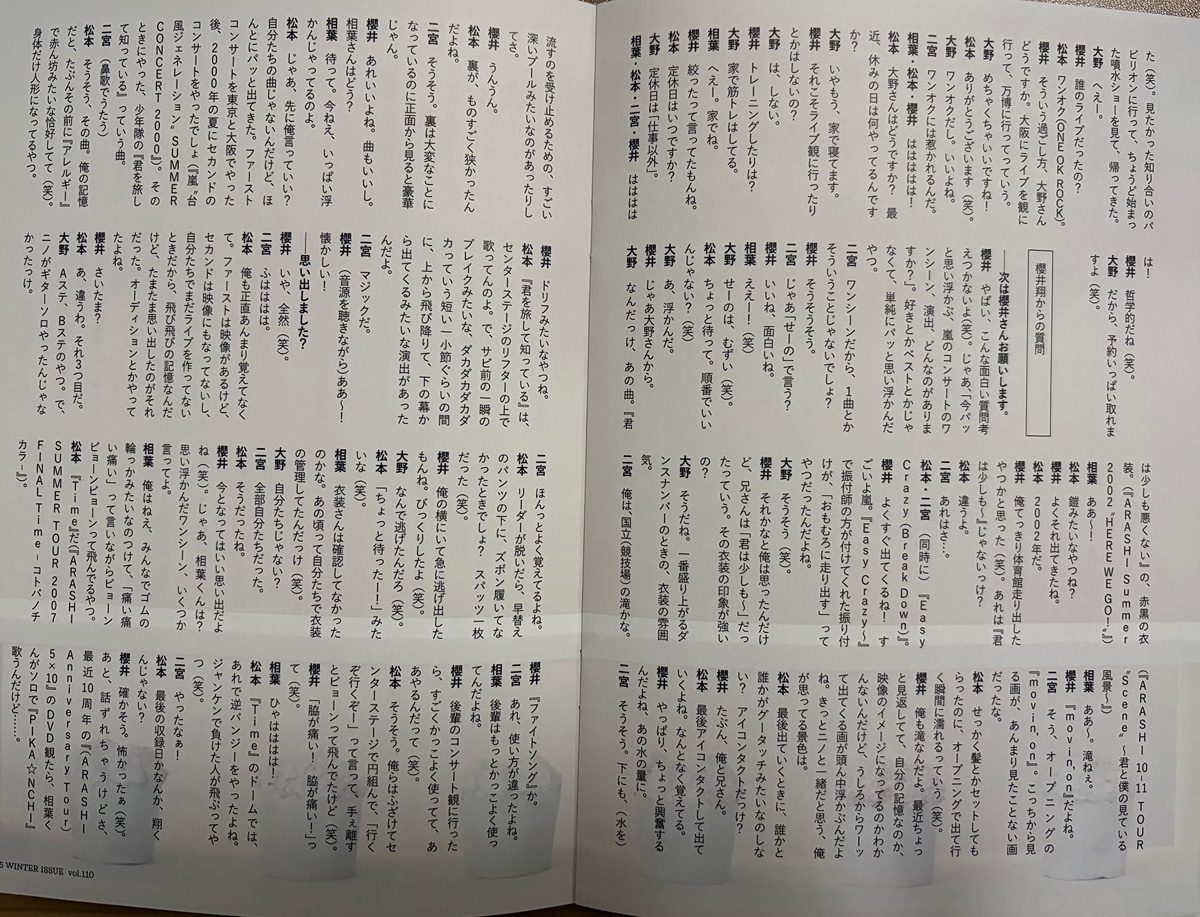 た（笑）。見たかった知り合いのパ
ビリオンに行って、ちょうど始まっ
た噴水ショーを見て、帰ってきた。
大野　へぇー。
櫻井　誰のライブだったの？
松本　ワンオク（ONE OK ROCK）。
櫻井　そういう過ごし方、大野さん
どうですか。大阪にライブを観に
行って、万博に行ってっていう。
大野　めちゃくちゃいいですね！
松本　ありがとうございます（笑）。
大野　ワンオクだし。いいよね。
二宮　ワンオクには惹かれるんだ。
相葉・松本・櫻井　はははははは！
松本　大野さんはどうですか？　最
近、休みの日は何やってるんです
か？
大野　いやもう、家で寝てます。
櫻井　それこそライブ観に行ったり
とかはしないの？
大野　は、しない。
櫻井　トレーニングしたりは？
大野　家で筋トレはしてる。
櫻井　へえー。家でね。
相葉　絞ったって言ってたもんね。
松本　定休日はいつですか？
大野　定休日は「仕事以外」。
相葉・松本・二宮・櫻井　はははは
は！
櫻井　哲学的だね（笑）。
大野　だから、予約いっぱい取れま
すよ（笑）。
櫻井翔からの質問
――次は櫻井さんお願いします。
櫻井　やばい、こんな面白い質問考
えつかないよ（笑）。じゃあ、「今パッ
と思い浮かぶ、嵐のコンサートのワ
ンシーン、演出、どんなのがありま
すか？」。好きとかベストとかじゃ
なくて、単純にパッと思い浮かんだ
やつ。
二宮　ワンシーンだから、1曲とか
そういうことじゃないでしょ？
櫻井　そうそうそう。
二宮　じゃあ「せーの」で言う？
櫻井　いいね、面白いね。
相葉　ええーー！（笑）
大野　せーのは、むずい（笑）。
松本　ちょっと待って。順番でいい
んじゃない？（笑）
大野　あ、浮かんだ。
櫻井　じゃあ大野さんから。
大野　なんだっけ、あの曲。『君
は少しも悪くない』の、赤黒の衣
装。（『ARASHI Summer
2002 “HERE WE GO！”』）
相葉　ああ！
松本　鎧みたいなやつね？
櫻井　よくそれ出てきたね。
松本　2002年だ。
櫻井　俺てっきり体育館走り出した
やつかと思った（笑）。あれは『君
は少しも～』じゃないっけ？
松本　違うよ。
二宮　あれはさ…。
松本・二宮　（同時に）『Easy
Crazy（Break Down）』。
櫻井　よくすぐ出てくるね！　す
ごいよ嵐。『Easy Crazy～』
で振付師の方が付けてくれた振り付
けが、「おもむろに走り出す」って
やつだったんだよね。
大野　そうそう（笑）。
櫻井　それかなと俺は思ったんだけ
ど、兄さんは「君は少しも～」だっ
たっていう。その衣装の印象が強い
の？
大野　そうだね。一番盛り上がるダ
ンスナンバーのときの、衣装の雰囲
気。
二宮　俺は、国立（競技場）の滝かな。
（『ARASHI 10-11 TOUR
“Scene”～君と僕の見ている
風景～』）
相葉　ああ～、滝ねぇ。
櫻井　『movin,on』だよね。
二宮　そう、オープニングの
『movin,on』。こっちから見
る画が、あんまり見たことない画
だったな。
松本　せっかく髪とかセットしても
らったのに、オープニングで出て行
く瞬間に濡れるっていう（笑）。
櫻井　俺も滝なんだよ。最近ちょっ
と見返してて、自分の記憶なのか、
映像のイメージになってるのかわか
んないんだけど、うしろからワーッ
て出てくる画が頭ん中浮かぶんだよ
ね。きっとニノと一緒だと思う、俺
が思ってる景色は。
松本　最後出ていくときに、誰かと
誰かがグータッチみたいなのしな
い？　アイコンタクトだっけ？
櫻井　たぶん、俺と兄さん。
松本　最後アイコンタクトして出て
いくよね。なんとなく覚えてる。
櫻井　やっぱり、ちょっと興奮する
んだよね、あの水の量に。
二宮　そうそう。下にも、（水を）
流すのを受け止めるための、すごい
深いプールみたいなのがあったりし
てさ。
櫻井　うんうん。
松本　裏が、ものすごく狭かったん
だよね。
二宮　そうそう。裏は大変なことに
なっているのに正面から見ると豪華
じゃん。
櫻井　あれいいよね。曲もいいし。
相葉さんはどう？
相葉　待って。今ねえ、いっぱい浮
かんじゃってるのよ。
松本　じゃあ、先に俺言っていい？
自分たちの曲じゃないんだけど、ほ
んとにパッと出てきた。ファースト
コンサートを東京と大阪でやった
後、2000年の夏にセカンドの
コンサートをやったでしょ（『嵐“台
風ジェネレーション” SUMMER
CONCERT 2000』）。その
ときにやった、少年隊の『君を旅し
て知っている』っていう曲。
二宮　（鼻歌でうたう）
松本　そうそう、その曲。俺の記憶
だと、たぶんその前に『アレルギー』
で赤ん坊みたいな恰好してて（笑）。
身体だけ人形になってるやつ。
櫻井　ドリフみたいなやつね。
松本　『君を旅して知っている』は、
センターステージのリフターの上で
歌ってんのよ。で、サビ前の一瞬の
ブレイクみたいな、ダカダカダカダ
カっていう短い一小節ぐらいの間
に、上から飛び降りて、下の幕か
ら出てくるみたいな演出があった
んだよ。
二宮　マジックだ。
櫻井　（音源を聴きながら）ああ～！
懐かしい！
――思い出しました？
櫻井　いや、全然（笑）。
二宮　ふはははは。
松本　俺も正直あんまり覚えてなく
て。ファーストは映像があるけど、
セカンドは映像にもなってないし、
自分たちでまだライブを作ってない
ときだから、飛び飛びの記憶なんだ
けど、たまたま思い出したのがそれ
だった。オーディションとかやって
たよね。
櫻井　さいたま？
松本　あ、違うわ。それ3つ目だ。
大野　Aステ、Bステのやつ。で、
ニノがギターソロやったんじゃな
かったっけ。
二宮　ほんっとよく覚えてるよね。
松本　リーダーが脱いだら、早替え
のパンツの下に、ズボン履いてな
かったときでしょ？　スパッツ一枚
だった（笑）。
櫻井　俺の横にいて急に逃げ出した
もんね。びっくりしたよ（笑）。
大野　なんで逃げたんだろ（笑）。
松本　「ちょっと待ったー！」みた
いな（笑）。
相葉　衣装さんは確認してなかった
のかな。あの頃って自分たちで衣装
の管理してたんだっけ（笑）。
大野　自分たちじゃない？
二宮　全部自分たちだった。
松本　そうだったね。
櫻井　今となってはいい思い出だよ
ね（笑）。じゃあ、相葉くんは？
思い浮かんだワンシーン、いくつか
言ってよ。
相葉　俺はねえ、みんなでゴムの
輪っかみたいなのつけて、「痛い痛
い痛い」って言いながらピョーン
ピョーンピョーンって飛んでるやつ。
松本　『Time』だ（『ARASHI
SUMMER TOUR 2007
FINAL Time－コトバノチ
カラ－』）。
櫻井　『ファイトソング』か。
二宮　あれ、使い方が違ったよね。
相葉　後輩はもっとかっこよく使っ
てたんだよね。
櫻井　後輩のコンサート観に行った
ら、すごくかっこよく使ってて、あ
あやるんだって（笑）。
松本　そうそう。俺らはふざけてセ
ンターステージで円組んで、「行く
ぞ行くぞー」って言って、手ぇ離す
とピョーンって飛んでたけど（笑）。
櫻井　「脇が痛い！　脇が痛い！」っ
て（笑）。
相葉　ひゃはははは！
松本　『Time』のドームでは、
あれで逆バンジーをやったよね。
ジャンケンで負けた人が飛ぶってや
つ（笑）。
二宮　やったなぁ！
松本　最後の収録日かなんか、翔く
んじゃない？
櫻井　確かそう。怖かったぁ（笑）。
あと、話ずれちゃうけどさ、
最近10周年の『ARASHI
Anniversary Tour
5×10』のDVD観たら、相葉く
んがソロで『PIKA☆NCHI』
歌うんだけど……。
5 WINTER ISSUE vol.110